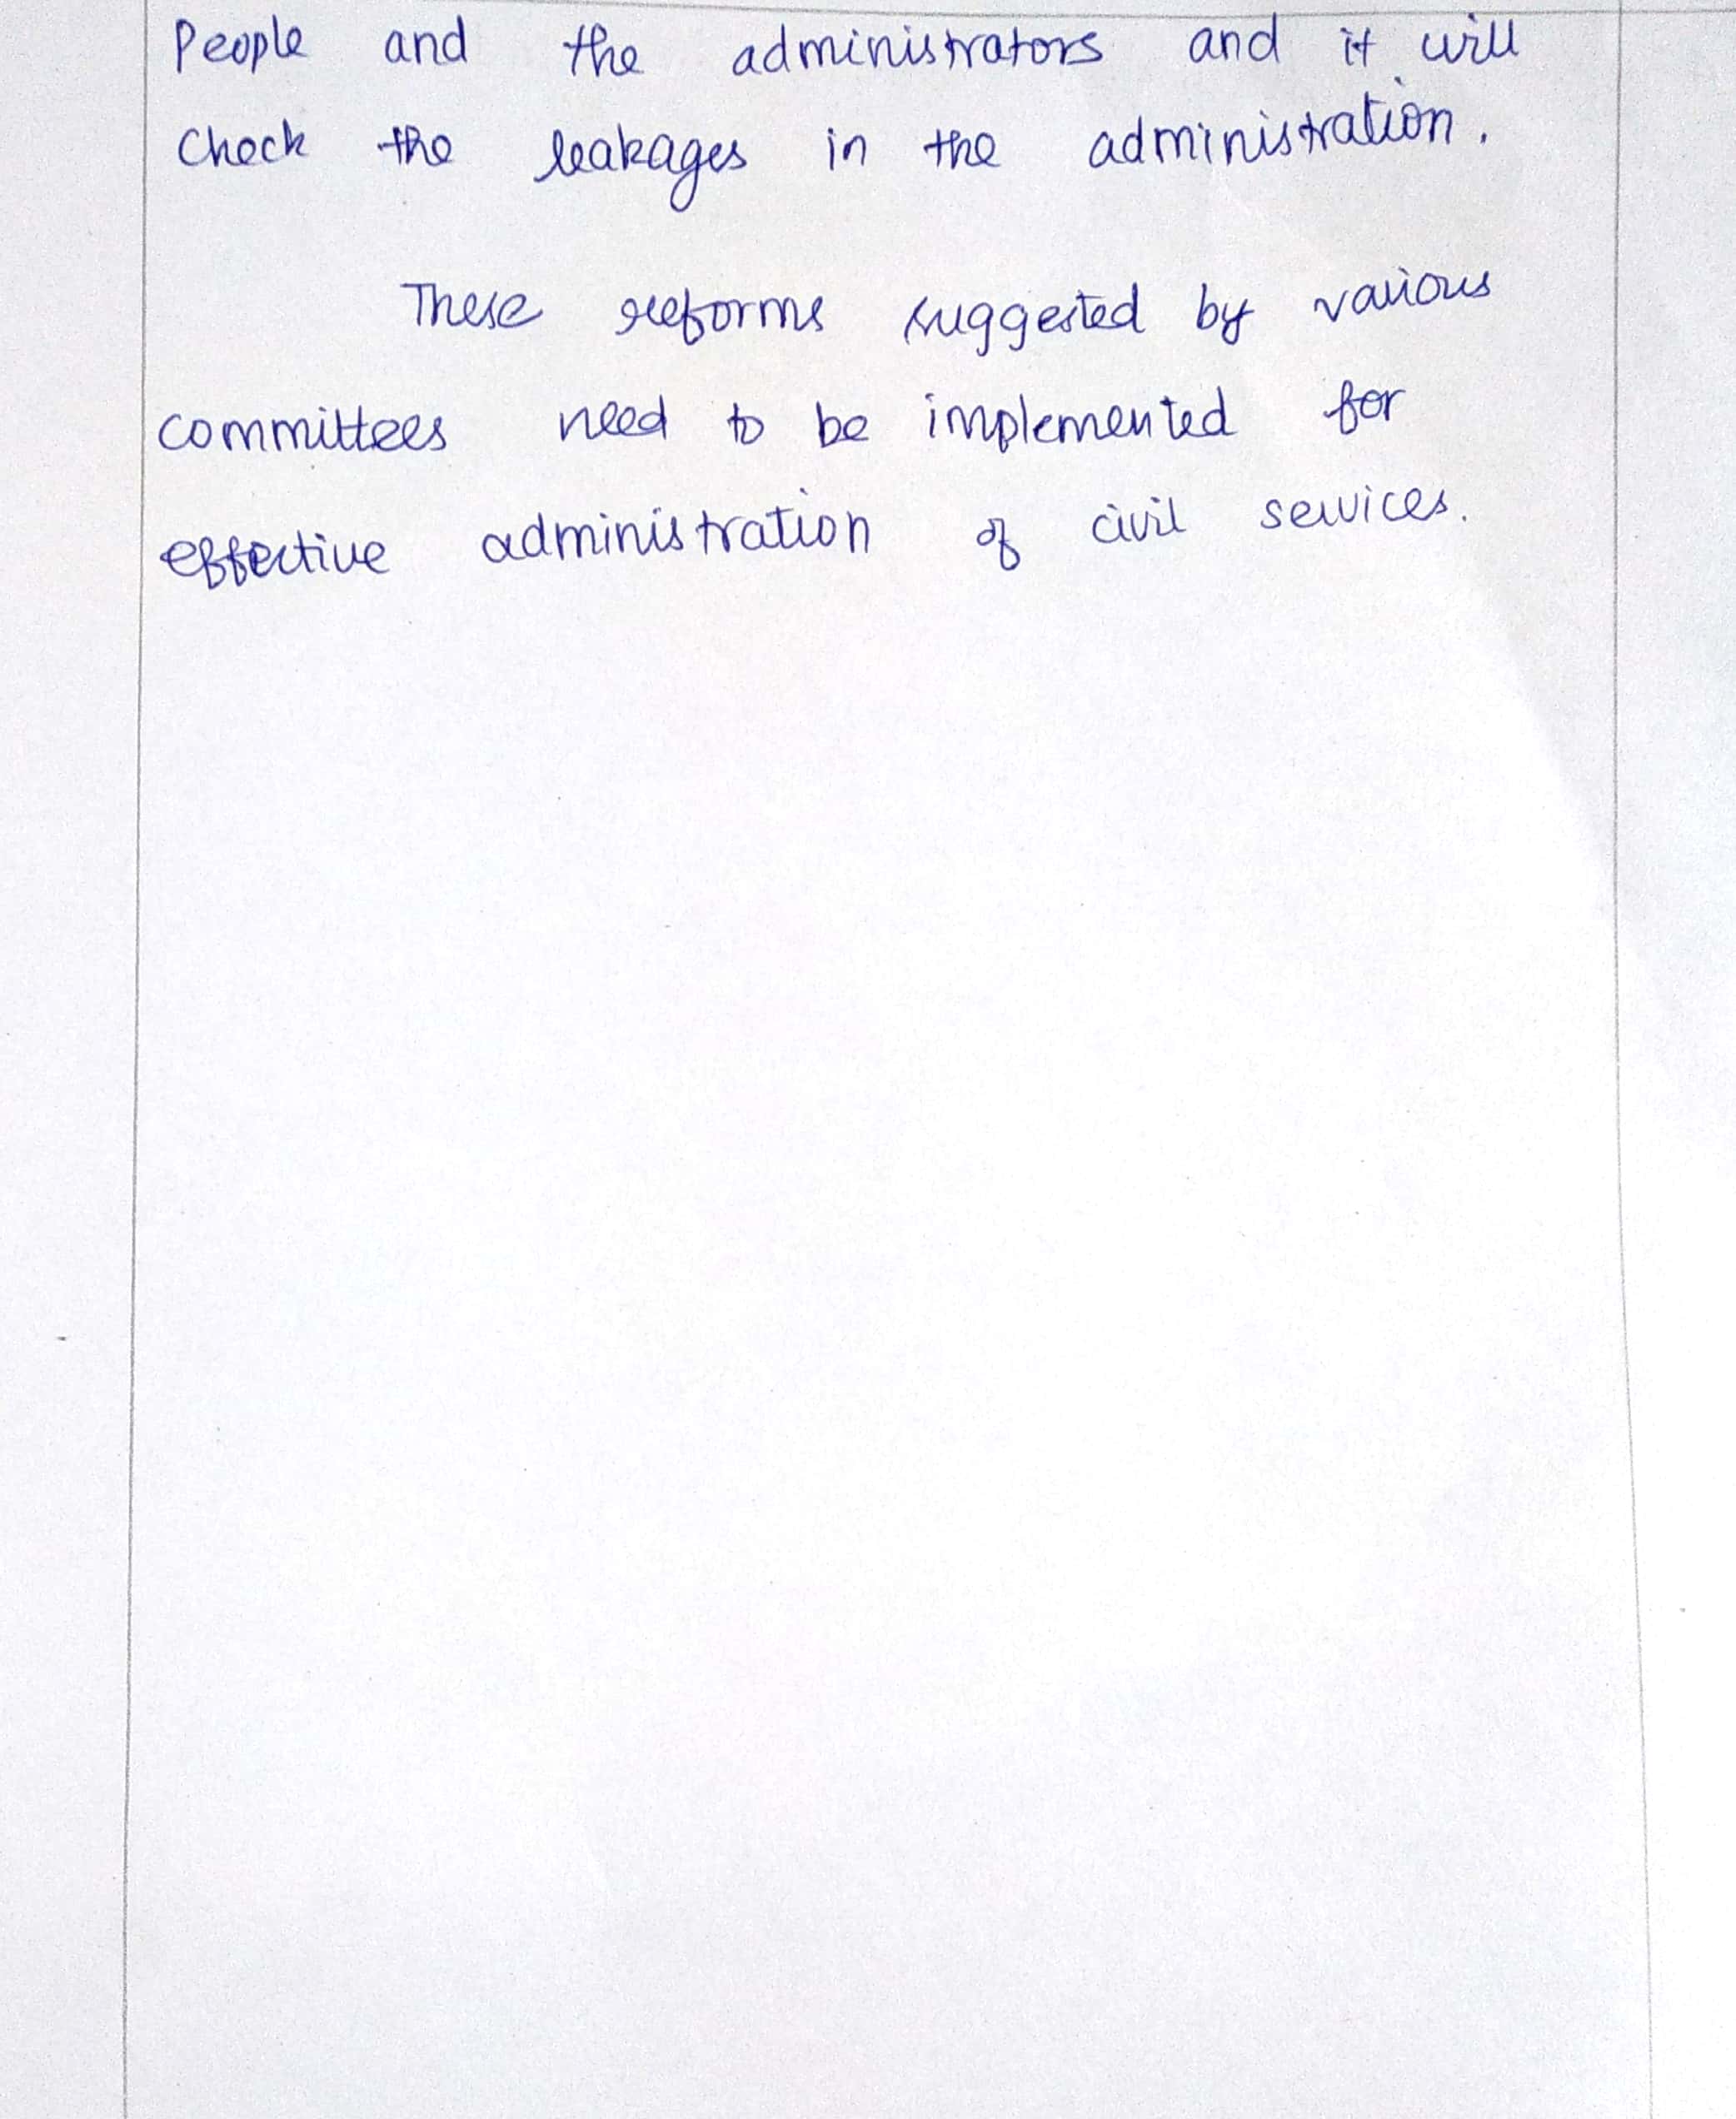 People and the administrators and it will
Check the leakages in the administration.
These reforms suggested by various
committees need to be implemented for
effective administration of civil services.